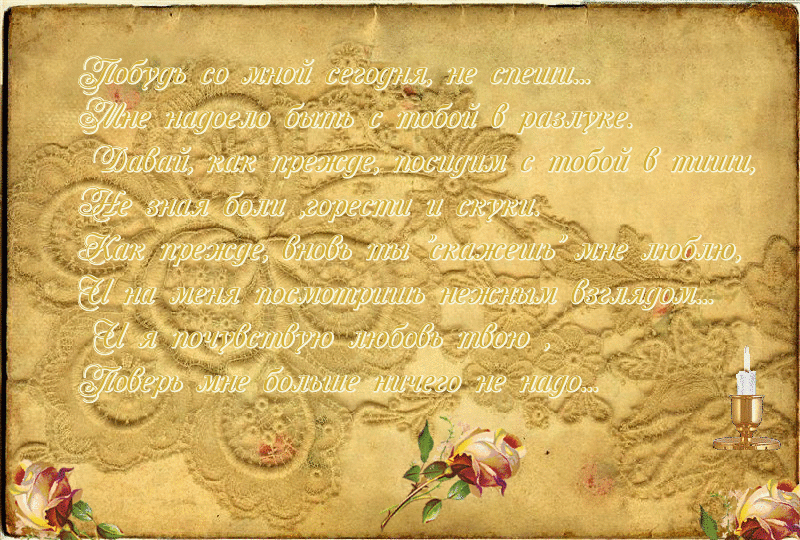 Побудь со мной сегодня, не спеши...
Мне надоело быть с тобой в разлуке.
Давай, как прежде, посидим с тобой в тиши,
Не зная боли ,горести и скуки.
Как прежде, вновь ты "скажешь" мне люблю,
И на меня посмотришь нежным взглядом...
И я почувствую любовь твою ,
Поверь мне больше ничего не надо...